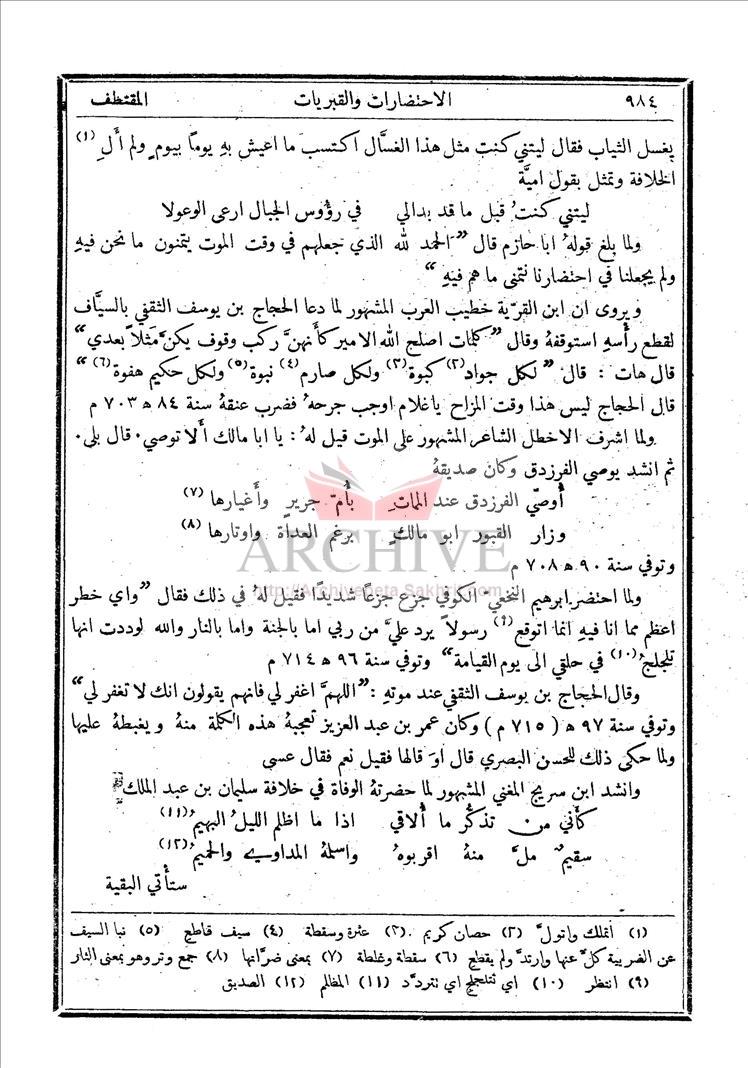 ٩٨٤ الاحتضارات والقبريات المقتطف
يغسل الثياب فقال ليتني كنت مثل هذا الغسَّال اكتسب ما اعيش بهِ يوماً بيوم ولم أَلِ (١)
الخلافة وتمثل بقول اميَّة
ليتني كنتُ قبل ما قد بدالي في رؤوس الجبال ارعى الوعولا
ولما بلغ قولهُ ابا حازم قال ”الحمد لله الذي جعلهم في وقت الموت يتمنون ما نحن فيهِ
ولم يجعلنا في احتضارنا نتمنى ما هم فيهِ“
ويروى ان ابن القرّية خطيب العرب المشهور لما دعا الحجاج بن يوسف الثقفي بالسيَّاف
لقطع رأسهِ استوقفهُ وقال ”كلمات اصلح الله الامير كأنهنَّ ركب وقوف يكنَّ مثلاً بعدي“
قال هات : قال ”لكل جواد (٢) كبوة (٣) ولكل صارم (٤) نبوة (٥) ولكل حكيم هفوة (٦)“
قال الحجاج ليس هذا وقت المزاح ياغلام اوجب جرحهُ فضرب عنقهُ سنة ٨٤ ھ ٧٠٣ م
ولما اشرف الاخطل الشاعر المشهور على الموت قيل لهُ : يا ابا مالك أَلا توصي . قال بلى .
ثم انشد يوصي الفرزدق وكان صديقهُ
أُوصّي الفرزدق عند الممات بأُمّ جرير وأَغيارها (٧)
وزار القبور ابو مالكٍ برغم العداة واوتارها (٨)
ARCHIVE
وتوفي سنة ٩٠ ھ ٧٠٨ م
http://Archivebeta.Sakhrit.com
ولما احتضر ابرهيم النخعي الكوفي جزع جزعاً شديدًا فقيل لهُ في ذلك فقال ”واي خطر
اعظم مما انا فيهِ انما اتوقع (٩) رسولاً يرد عليَّ من ربي اما بالجنة واما بالنار والله لوددت انها
تلجلج (١٠) في حلقي الى يوم القيامة“ وتوفي سنة ٩٦ ھ ٧١٤ م
وقال الحجاج بن يوسف الثقفي عند موتهِ : ”اللهمَّ اغفر لي فانهم يقولون انك لا تغفر لي“
وتوفي سنة ٩٧ ھ ( ٧١٥ م ) وكان عمر بن عبد العزيز تعجبهُ هذه الكلمة منهُ ويغبطهُ عليها
ولما حكي ذلك للحسن البصري قال اوَ قالها فقيل نعم فقال عسى
وانشد ابن سريج المغني المشهور لما حضرتهُ الوفاة في خلافة سليمان بن عبد الملك
كأَني من تذكُّر ما أُلاقي اذا ما اظلم الليلُ البهيمُ (١١)
سقيمٌ ملَّ منهُ اقربوهُ واسلمهُ المداوي والحميمُ (١٢)
ستأتي البقية
(١) أتملك واتولَّ (٢) حصان كريم (٣) عثرة وسقطة (٤) سيف قاطع (٥) نبا السيف
عن الضريبة كلَّ عنها وارتدَّ ولم يقطع (٦) سقطة وغلطة (٧) بمعنى ضرَّاتها (٨) جمع وتر وهو بمعنى الثار
(٩) انتظر (١٠) اي تتلجلج اي تتردَّد (١١) المظلم (١٢) الصديق